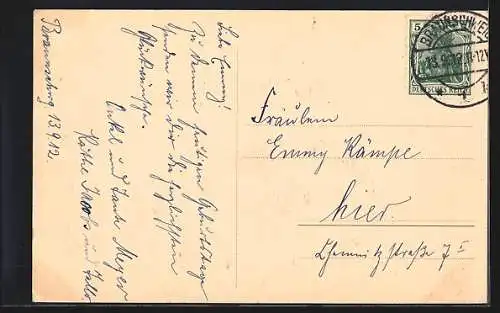 Braunschwg. 13.9.12.
Liebe Emmy!
Zu deinem heutigen Geburtstage
senden wir dir die herzlichsten
Glückwünsche.
Onkel und Tante Meyer
Käthe Jacobs und
Fräulein
Emmy Kämpe
hier.
Chemnitzstraße 7 I
BRAUNSCHWEIG
13.9.12. 11-12V
5
DEUTSCHES REICH